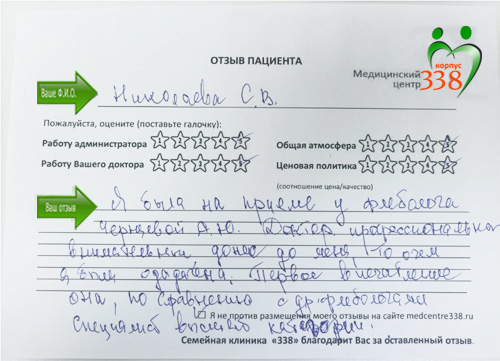 ОТЗЫВ ПАЦИЕНТА
корпус
Медицинский центр 338
Ваше Ф.И.О.
Николаева С.В.
Пожалуйста, оцените (поставьте галочку):
Работу администратора 1 2 3 4 5
Общая атмосфера 1 2 3 4 5
Работу Вашего доктора 1 2 3 4 5
Ценовая политика 1 2 3 4 5
(соотношение цена/качество)
Ваш отзыв
Я была на приеме у флеболога
А.Ю. Доктор профессионально
внимательно донес до меня, то о чем
я была озадачена. Первое впечатление
она, по сравнению с др. флебологами
специалист высшей категории.
Я не против размещения моего отзывы на сайте medcentre338.ru
Семейная клиника «338» благодарит Вас за оставленный отзыв.